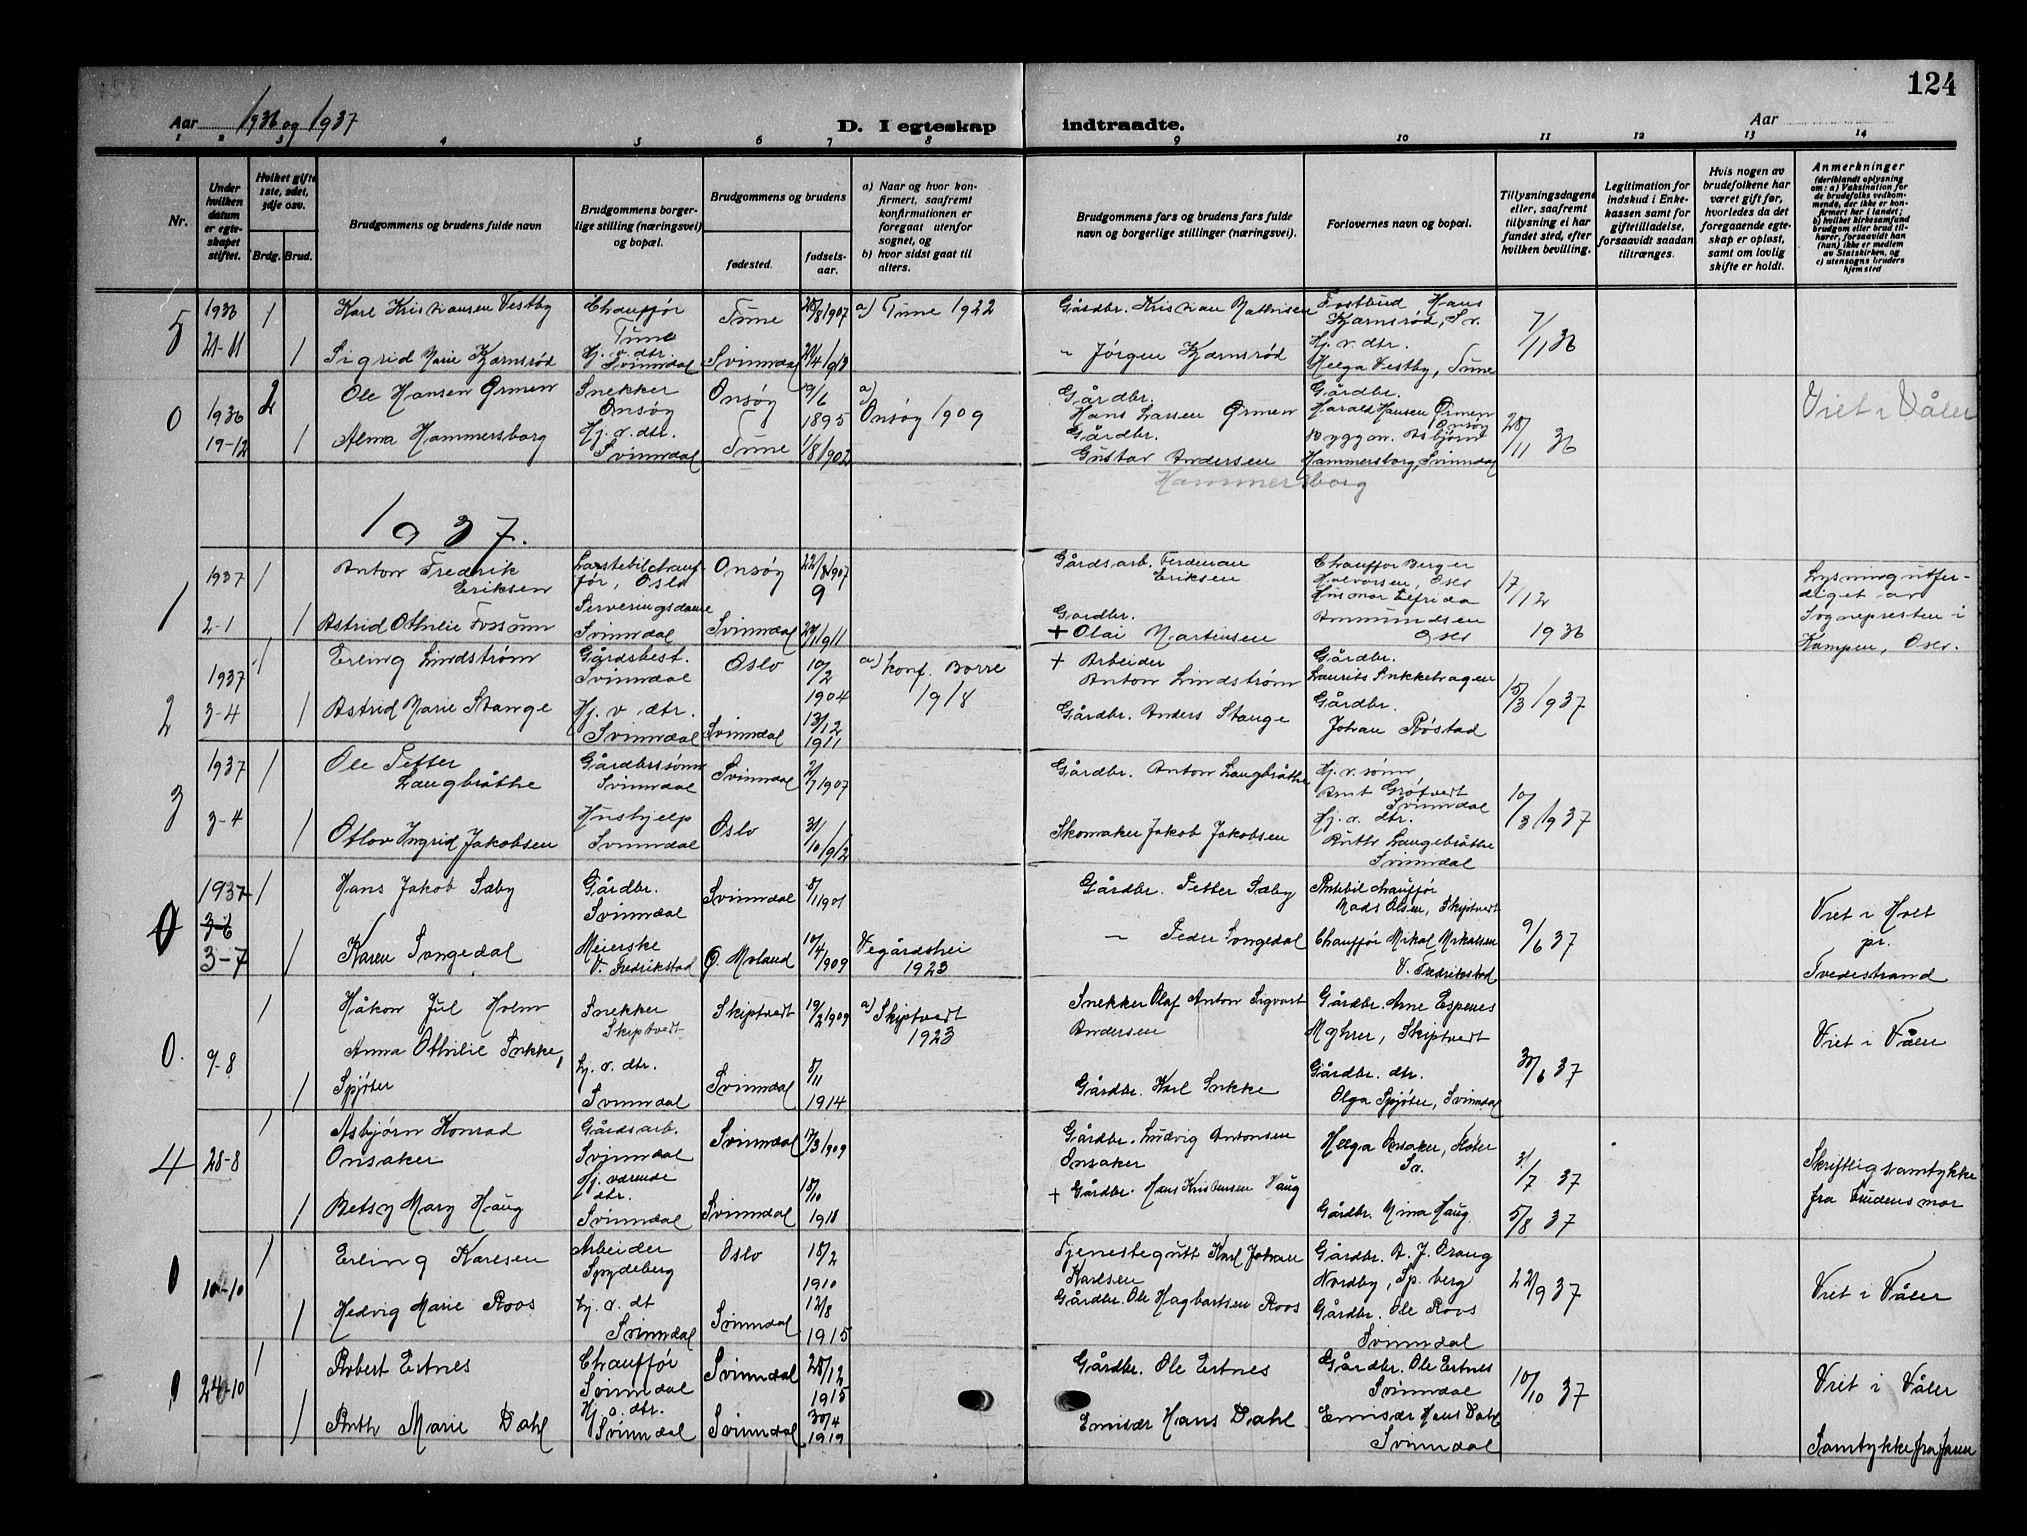 124
Aar 1936 og 1937
D. I egteskap indtraadte.
Aar
1 2 3 4 5 6 7 8 9 10 11 12 13 14
Nr.
Under hvilken datum er egteskapet stiftet.
Hvilket gifte 1ste, 2det, 3dje osv.
Brdg. Brud.
Brudgommens og brudens fulde navn
Brudgommens borgerlige stilling (næringsvei) og bopæl.
Brudgommens og brudens
fødested.
fødselsaar.
a) Naar og hvor konfirmert, saafremt konfirmutionen er foregaat utenfor sognet, og
b) hvor sidst gaat til alters.
Brudgommens fars og brudens fars fulde navn og borgerlige stillinger (næringsvei).
Forlovernes navn og bopæl.
Tillysningsdagene eller, saafremt tillysning ei har fundet sted, efter hvilken bevilling.
Legitimation for indskud i Enkekassen samt for giftetilladelse, forsaavidt saadan tiltrænges.
Hvis nogen av brudefolkene har været gift før, hvorledes da det foregaaende egteskap er opløst, samt om lovlig skifte er holdt.
Anmerkninger
(deriblandt oplysning om: a) Vaksination for de brudefolks vedkommende, der ikke er konfirmert her i landet;
b) hvilket kirkesamfund brudgom eller brud tilhører, forsaavidt han (hun) ikke er medlem av Statskirken, og
c) utensogns bruders hjemsted
5 1936 21-11 1 Karl Kristiansen Vestby Chauffør Tune Tune 28/8 1907 a) Tune 1922 Gårdbr. Kristian Mathisen Postbud Hans Kjærnsrød, Sv. 7/11 36
1 Sigrid Marie Kjærnsrød Hj. v. dtr. Svinndal Svinndal 1913 " Jörgen Kjærnsrød Hj. v. dtr. Helga Vestby, Tune
0 1936 19-12 2 Ole Hansen Ørmen Snekker Onsøy Onsøy 19/6 1895 a) Onsøy 1909 Gårdbr. Hans Larsen Ørmen Gårdbr. Harald Hansen Ørmen Onsøy 28/11 36 Viet i Våler
1 Alma Hammersborg Hj. v. dtr. Svinndal Tune 1/8 1902 Gårdbr. Gustav Andersen Hammersborg Byggm. Asbjørn Hammersborg, Svinndal
1937.
1 1937 2-1 1 Anton Fredrik Eriksen Lastebilchauffør, Oslo Onsøy 22/8 1907 9 Gårdsarb. Ferdinan Eriksen Chauffør Berger Halvorsen, Oslo 17/12 1936 Lysning utferdiget av Sognepresten i Kampen, Oslo.
1 Astrid Othilie Fossum Serveringsdame Svinndal Svinndal 1911 Gardbr. + Olai Martinsen Husmor Elfrida Ammundsen Oslo
2 1937 3-4 1 Erling Lindstrøm Gårdsbest. Svinndal Oslo 10/2 1904 a) Konf. Borre 1918 + Arbeider Anton Lindstrøm Gårdbr. Laurits 15/3 1937
1 Astrid Marie Stange Hj. v. dtr. Svinndal Svinndal 13/12 1911 Gårdbr. Anders Stange Gårdbr. Johan Røstad
3 1937 3-4 1 Ole Petter Langbråthe Gårdbrssønn Svinndal Svinndal 2/7 1907 Gårdbr. Anton Langbråthe Hj. v. sønn Arnt Grøtvedt Svinndal 10/3 1937
1 Otlov Ingrid Jakobsen Hushjelp Svinndal Oslo 31/10 1912 Skomaker Jakob Jakobsen Hj. v. dtr. Ruth Langebråthe Svinndal
0 1937 3-6 3-7 1 Hans Jakob Sæby Gårdbr. Svinndal Svinndal 8/1 1901 Gårdbr. Petter Sæby Rutebilchauffør Mads Olsen, Skiptvedt 9/6 37 Viet i Holt pr. Tvedestrand
1 Karen Songedal Meierske V. Fredrikstad Ø. Moland 10/4 1909 Vegårdshei 1923 " Peder Songedal Chauffør Mikal Mikalsen V. Fredrikstad
0. 9-8 1 Håkon Jul Holm Snekker Skiptvedt Skiptvedt 19/2 1909 a) Skiptvedt 1923 Snekker Olaf Anton Sigvart Andersen Gårdbr. Arne Espenes Myhrer, Skiptvedt 30/6 37 Viet i Våler
1 Anna Othilie Sukke, Spjøter hj. v. dtr. Svinndal Svinndal 8/11 1914 Gårdbr. Karl Sukke Gårdbr. dtr. Olga Spjøter, Svinndal
4 28-8 1 Asbjørn Konrad Onsaker Gårdsarb. Svinndal Svinndal 17/3 1909 Gårdbr. Ludvig Antonsen Onsaker Helga Onsaker, Sv. 31/7 37 Skriftlig samtykke fra brudens mor
1 Betsy Mary Haug Hj. værende dtr. Svinndal Svinndal 18/10 1918 + Gårdbr. Hans Kristensen Haug Gårdbr. Mina Haug 5/8 37
0 10-10 1 Erling Karlsen Arbeider Spydeberg Oslo 18/2 1910 Tjenestegutt Karl Johan Karlsen Gårdbr. A. J. Braug Nordby, Sp. berg 22/9 37 Viet i Våler
1 Hedvig Marie Roos hj. v. dt Svinndal Svinndal 12/8 1915 Gårdbr. Ole Hagbartsen Roos Gårdbr. Ole Roos Svinndal
0 24-10 1 Robert Ertnes Chauffør Svinndal Svinndal 28/12 1915 Gårdbr. Ole Ertnes Gårdbr. Ole Ertnes Svinndal 10/10 37 Viet i Våler
1 Ruth Marie Dahl Hj. v. dtr. Svinndal Svinndal 30/4 1919 Emisær Hans Dahl Emisær Hans Dahl Svinndal Samtykke fra faren